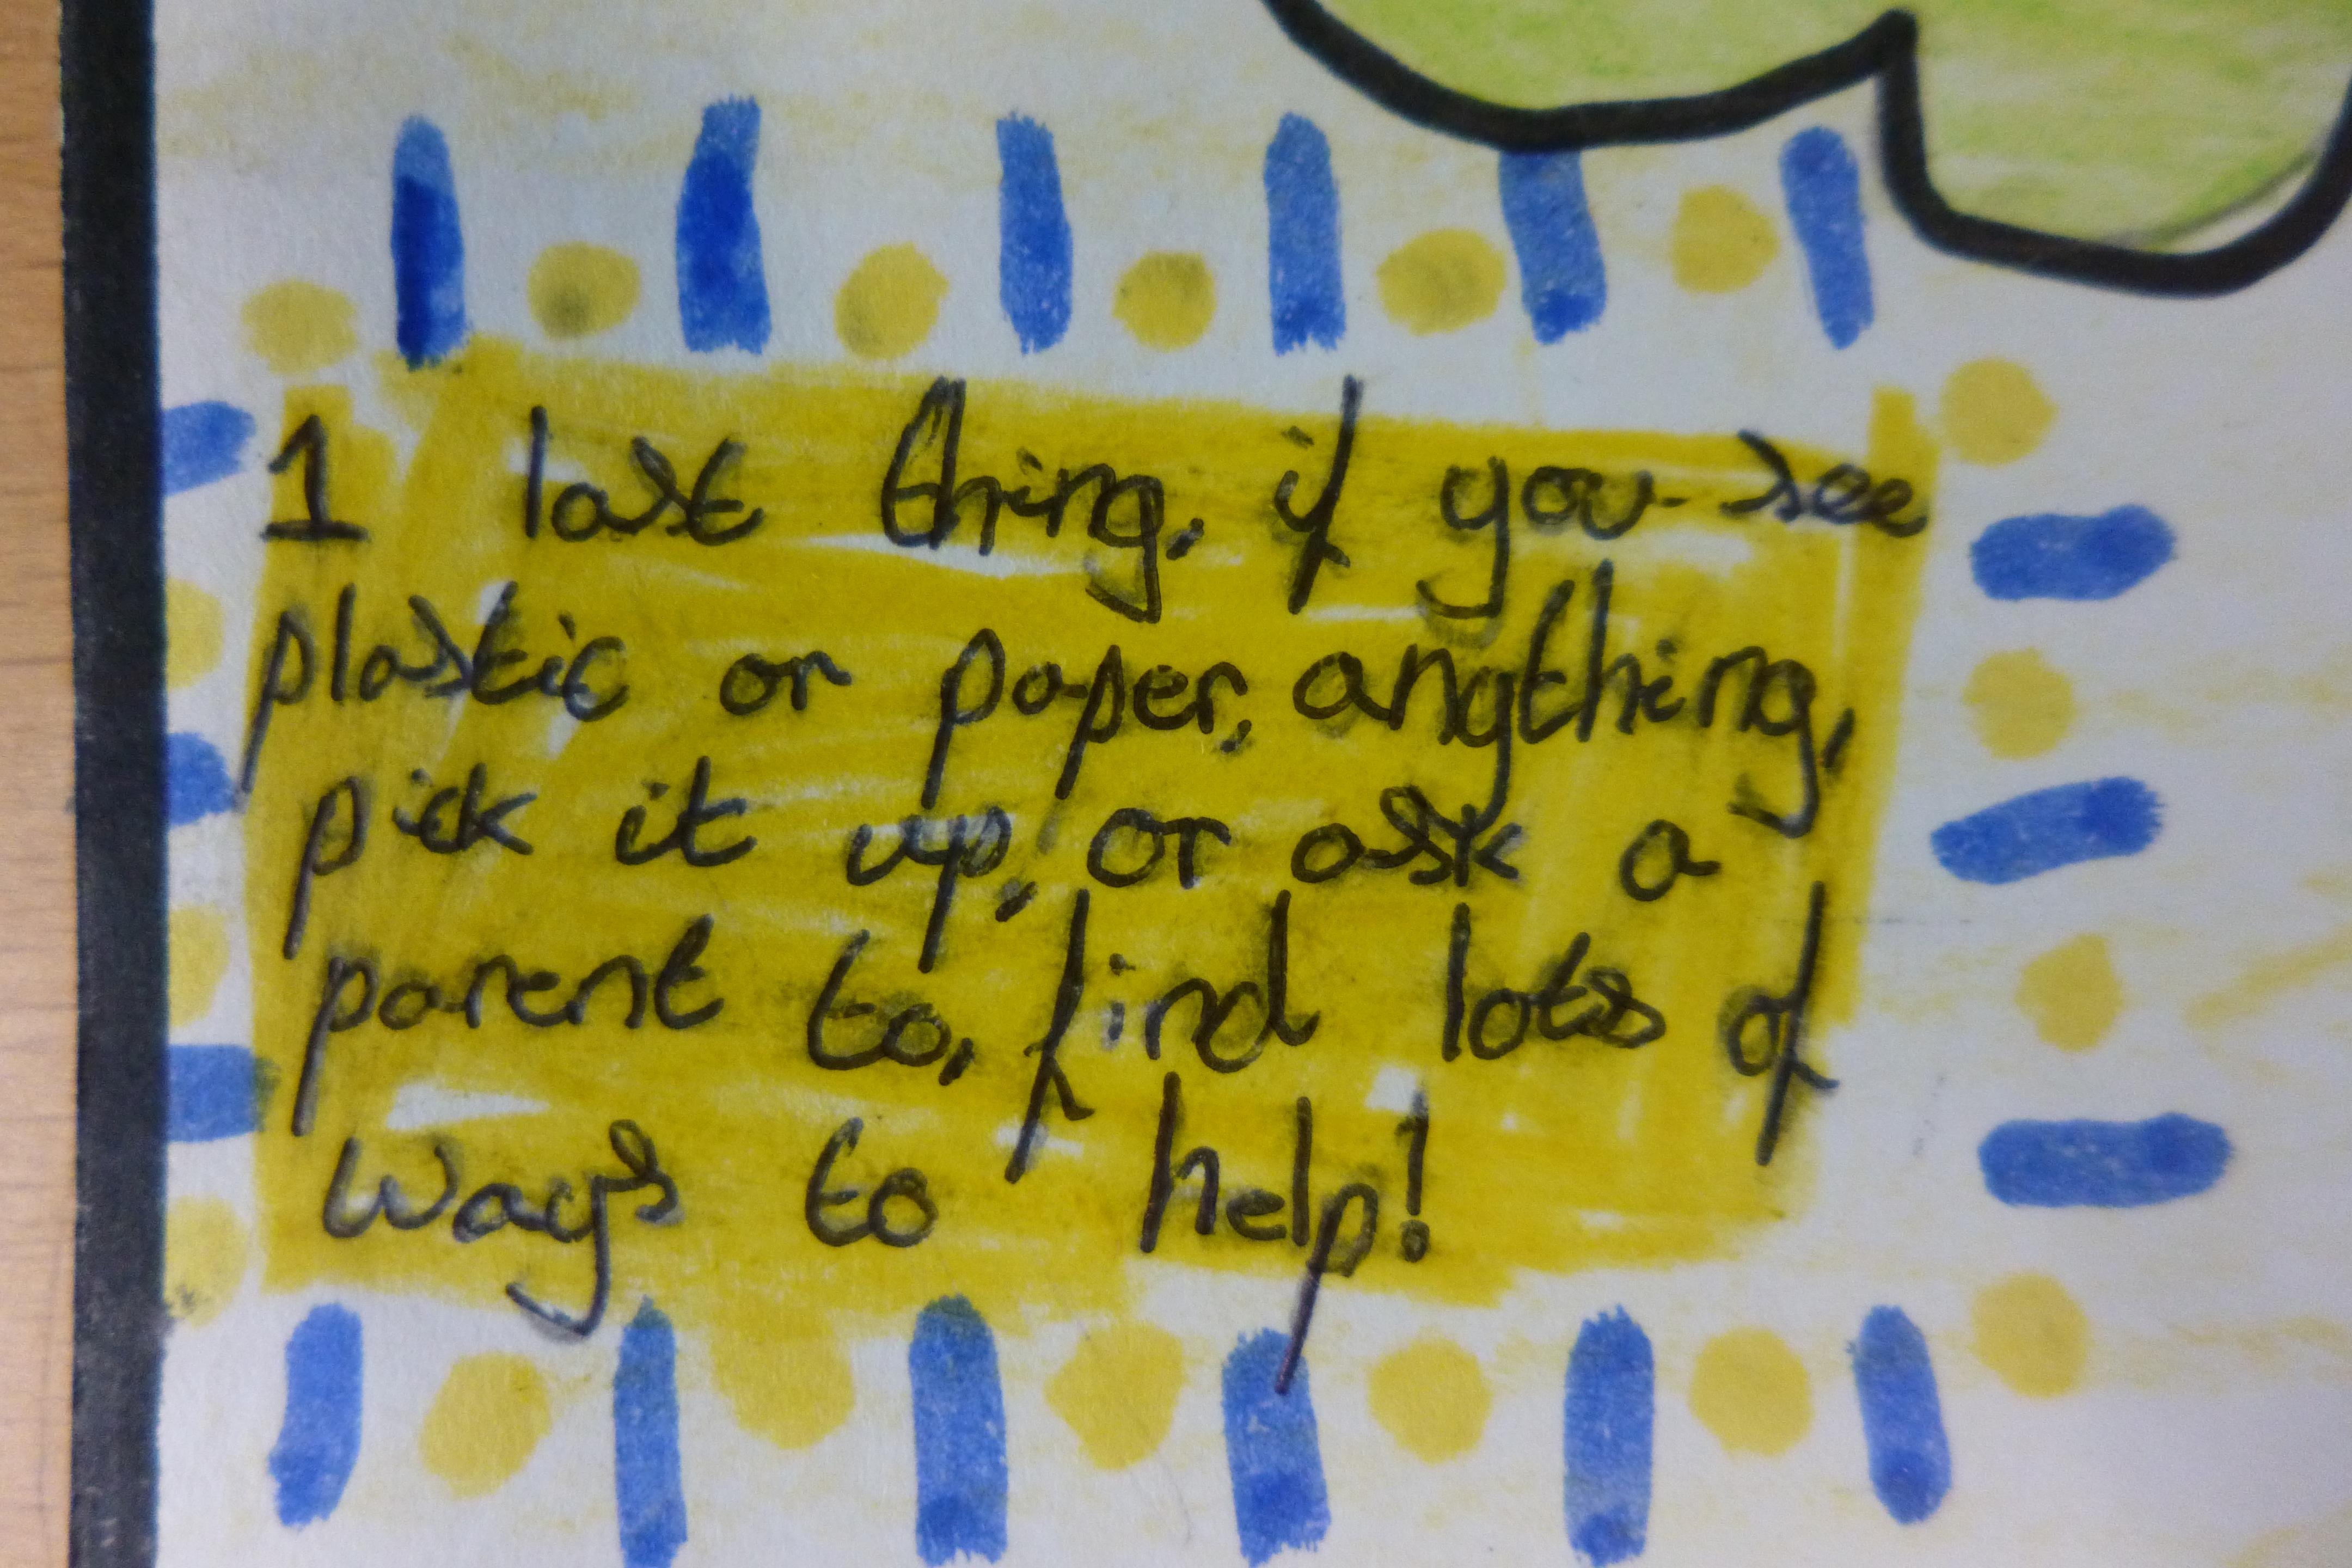 1 last thing, if you see
plastic or paper, anything,
pick it up, or ask a
parent to, find lots of
ways to help!